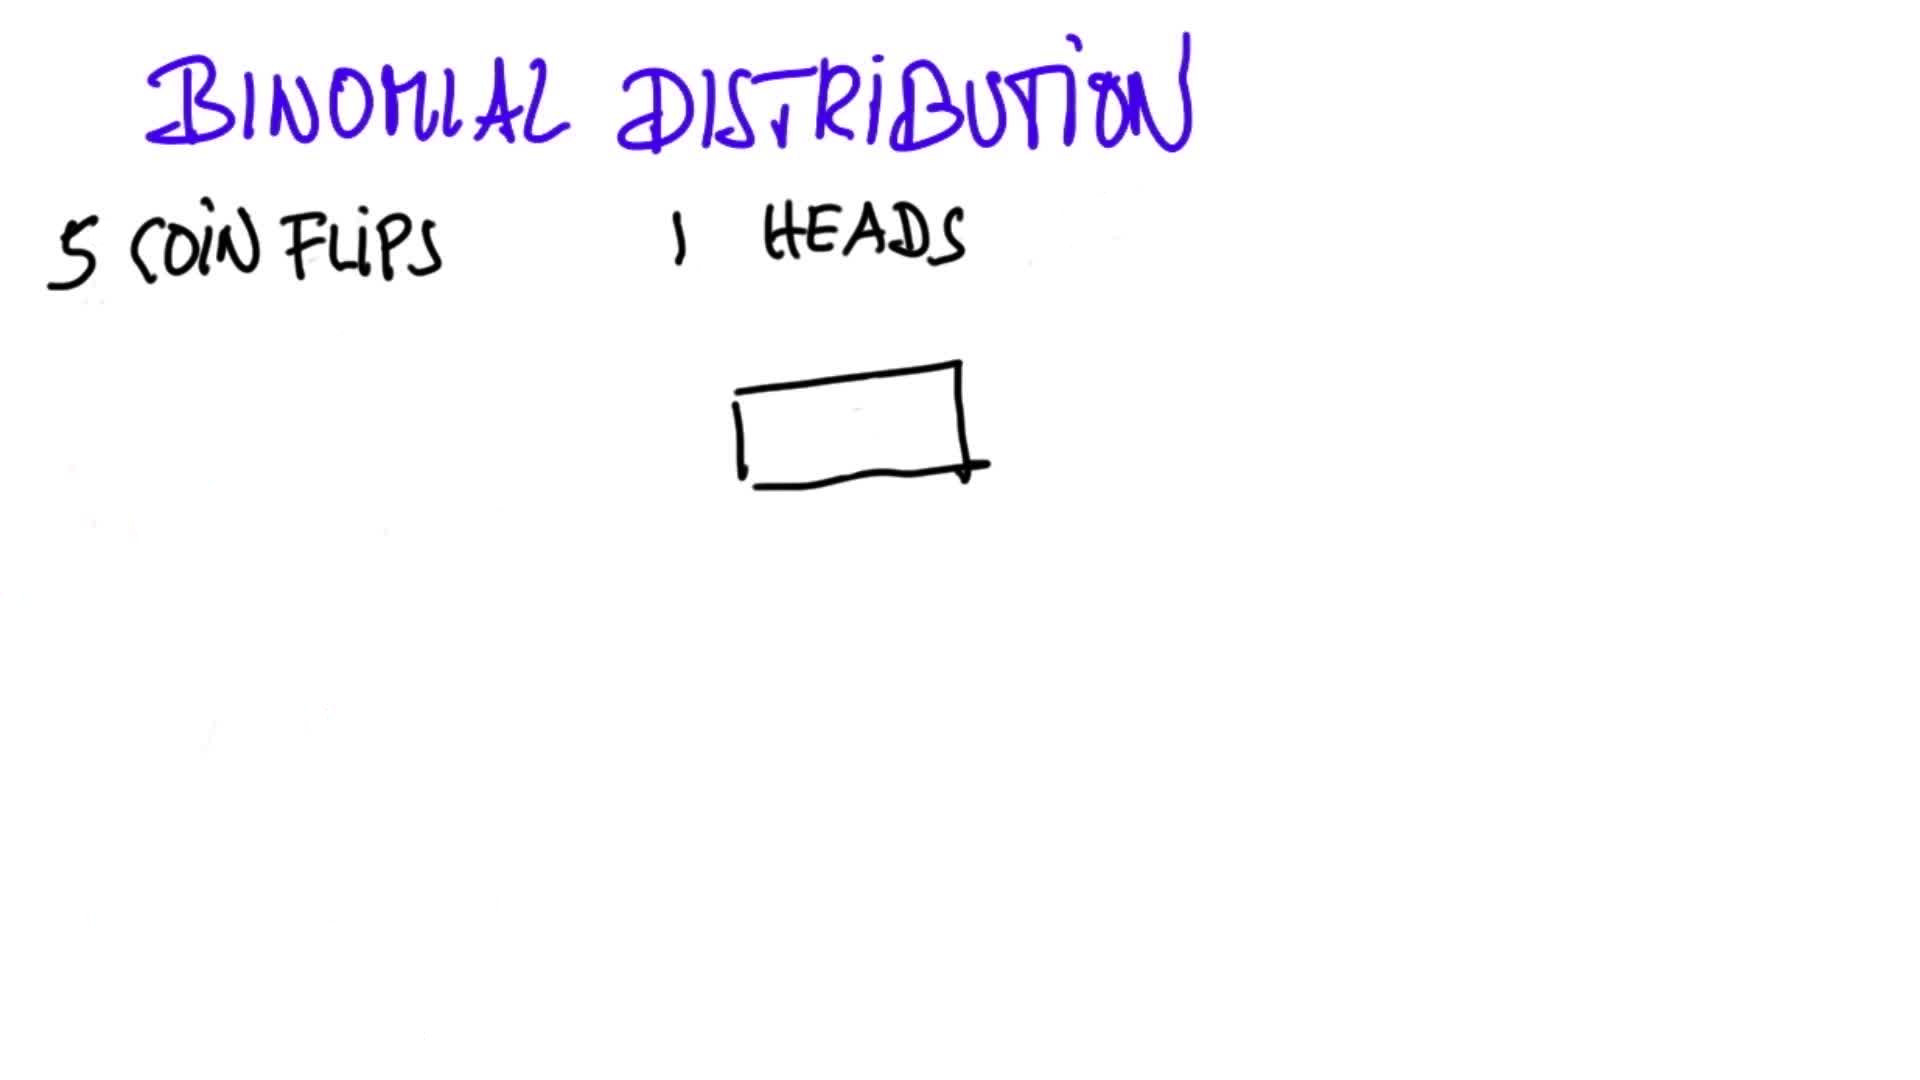 BINOMIAL DISTRIBUTION
5 COIN FLIPS 1 HEADS